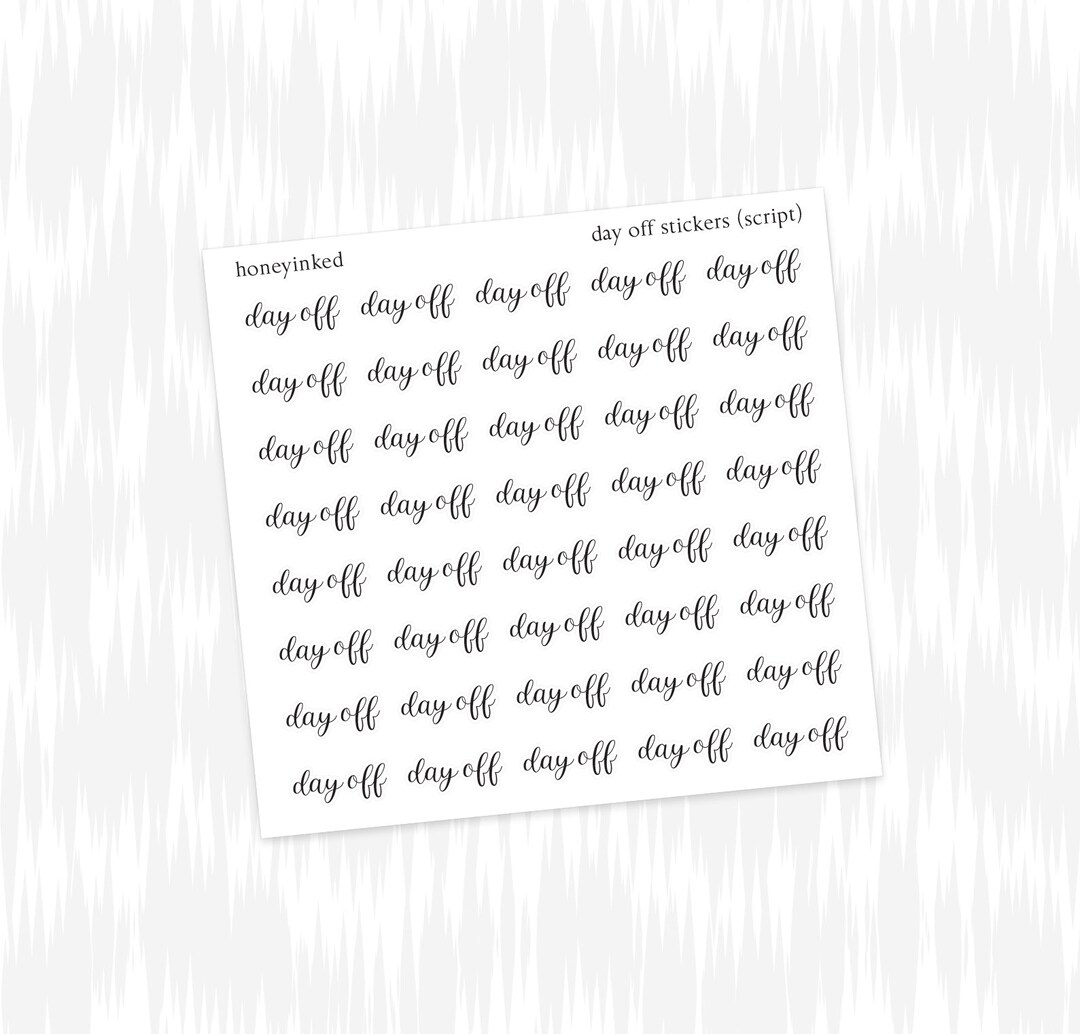 honeyinked day off stickers (script)
day off day off day off day off day off
day off day off day off day off day off
day off day off day off day off day off
day off day off day off day off day off
day off day off day off day off day off
day off day off day off day off day off
day off day off day off day off day off
day off day off day off day off day off